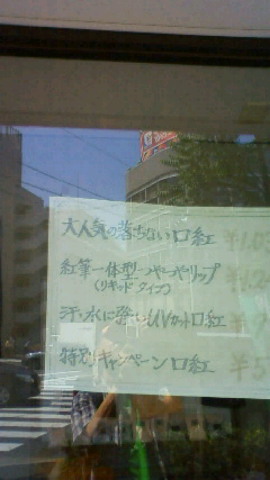 大人気の落ちない口紅 ¥1.0
紅筆一体型つやつやリップ ¥1.2
(リキッド タイプ)
汗・水に強いUVカット口紅 ¥
特別キャンペーン口紅 ¥5